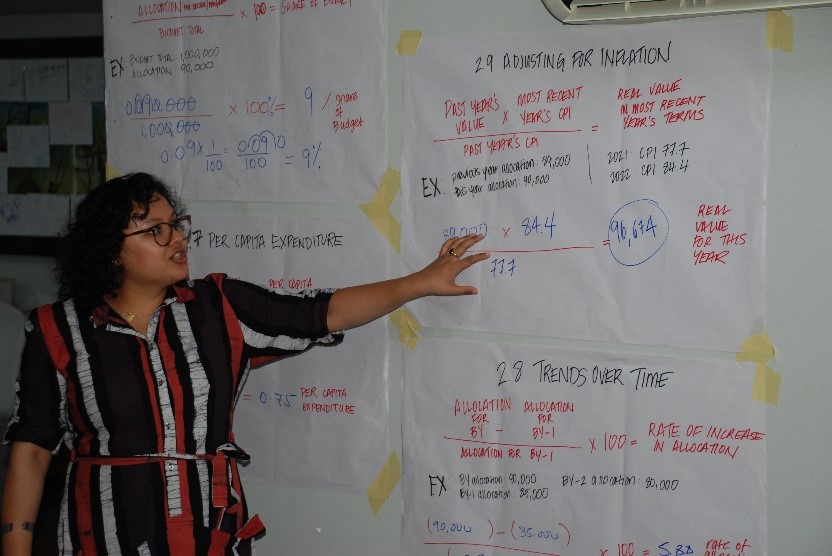 ALLOCATION
BUDGET TOTAL
× 100 = SHARE OF BUDGET
EX BUDGET TOTAL 1,000,000
ALLOCATION 90,000
1,000,000
× 100% = 9 / share of Budget
0.09 × 1/100 = 0.09/100 = 9%
7 PER CAPITA EXPENDITURE
PER CAPITA
= 0.75 PER CAPITA EXPENDITURE
2.9 ADJUSTING FOR INFLATION
PAST YEAR'S VALUE × MOST RECENT YEAR'S CPI
PAST YEAR'S CPI
= REAL VALUE IN MOST RECENT YEAR'S TERMS
EX: previous year allocation: 89,000
this year allocation: 90,000
2021: CPI 77.7
2022: CPI 84.4
89,000 × 84.4
77.7
= 96,674
REAL VALUE FOR THIS YEAR
2.8 TRENDS OVER TIME
ALLOCATION FOR BY - ALLOCATION FOR BY-1
ALLOCATION FOR BY-1
× 100 = RATE OF INCREASE IN ALLOCATION
EX BY allocation: 90,000 BY-2 allocation: 80,000
BY-1 allocation: 85,000
(90,000) - (85,000)
× 100 = 5.88 rate of